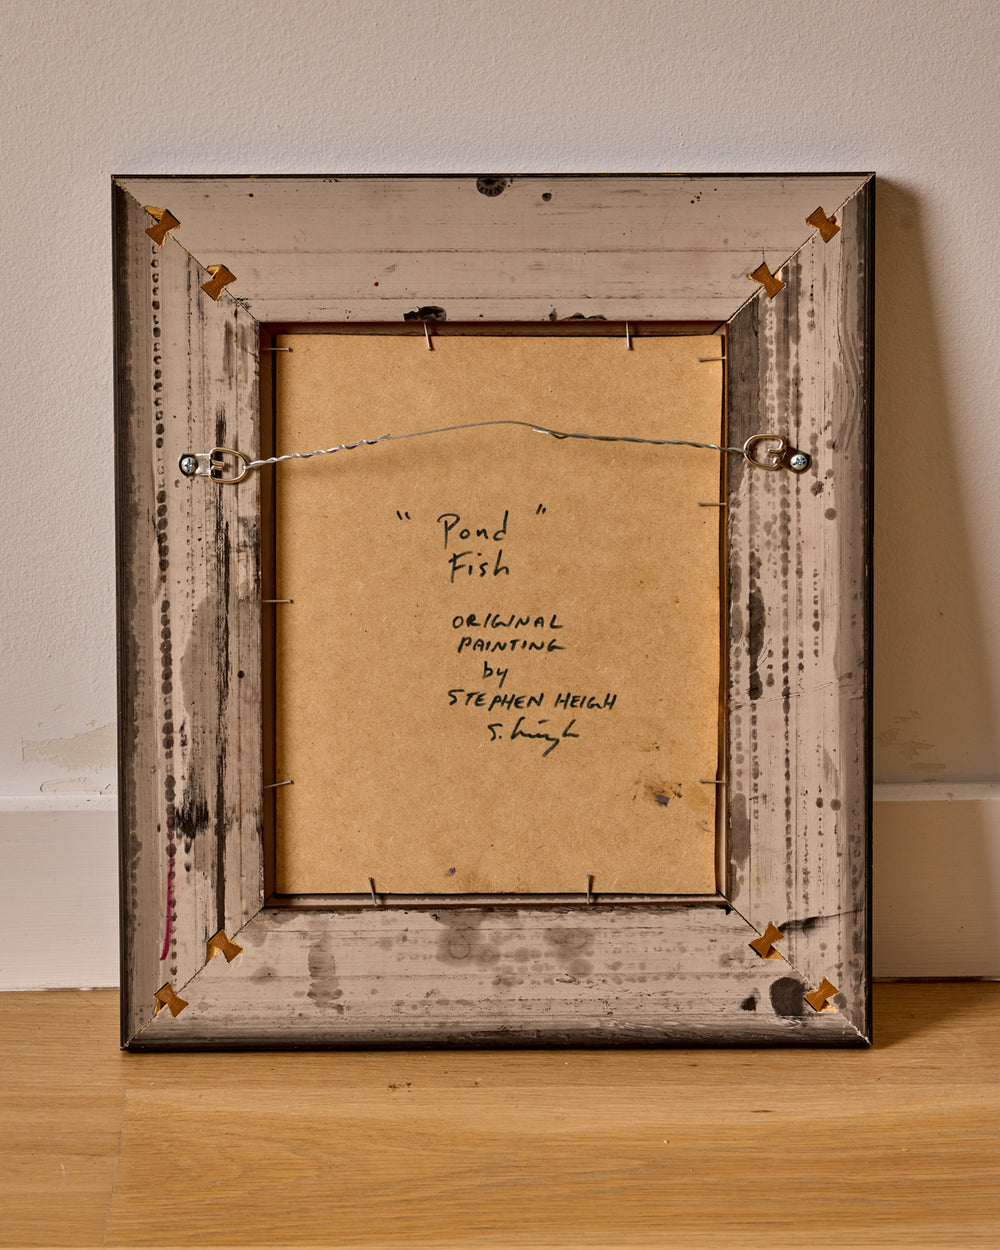 " Pond "
Fish
ORIGINAL
PAINTING
by
STEPHEN HEIGH
S. Heigh